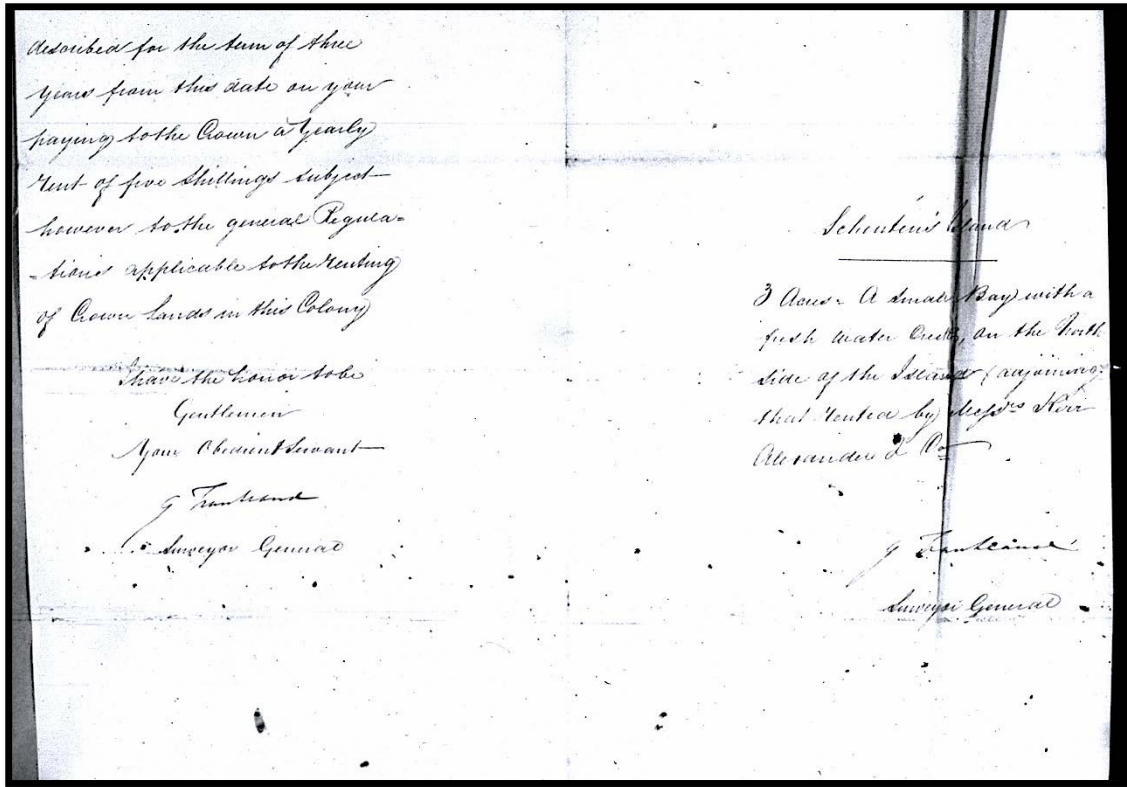 described for the term of three
years from this date on your
paying to the Crown a Yearly
rent of five Shillings subject
however to the general Regula=
=tions applicable to the renting
of Crown Lands in this Colony
I have the honor to be
Gentlemen
Your Obedient Servant
G Frankland
Surveyor General
Schouten's Island
3 Acres - A Small Bay with a
fresh water Creek, on the North
side of the Island (adjoining
that rented by Messrs Kerr
Alexander & Co
G Frankland
Surveyor General